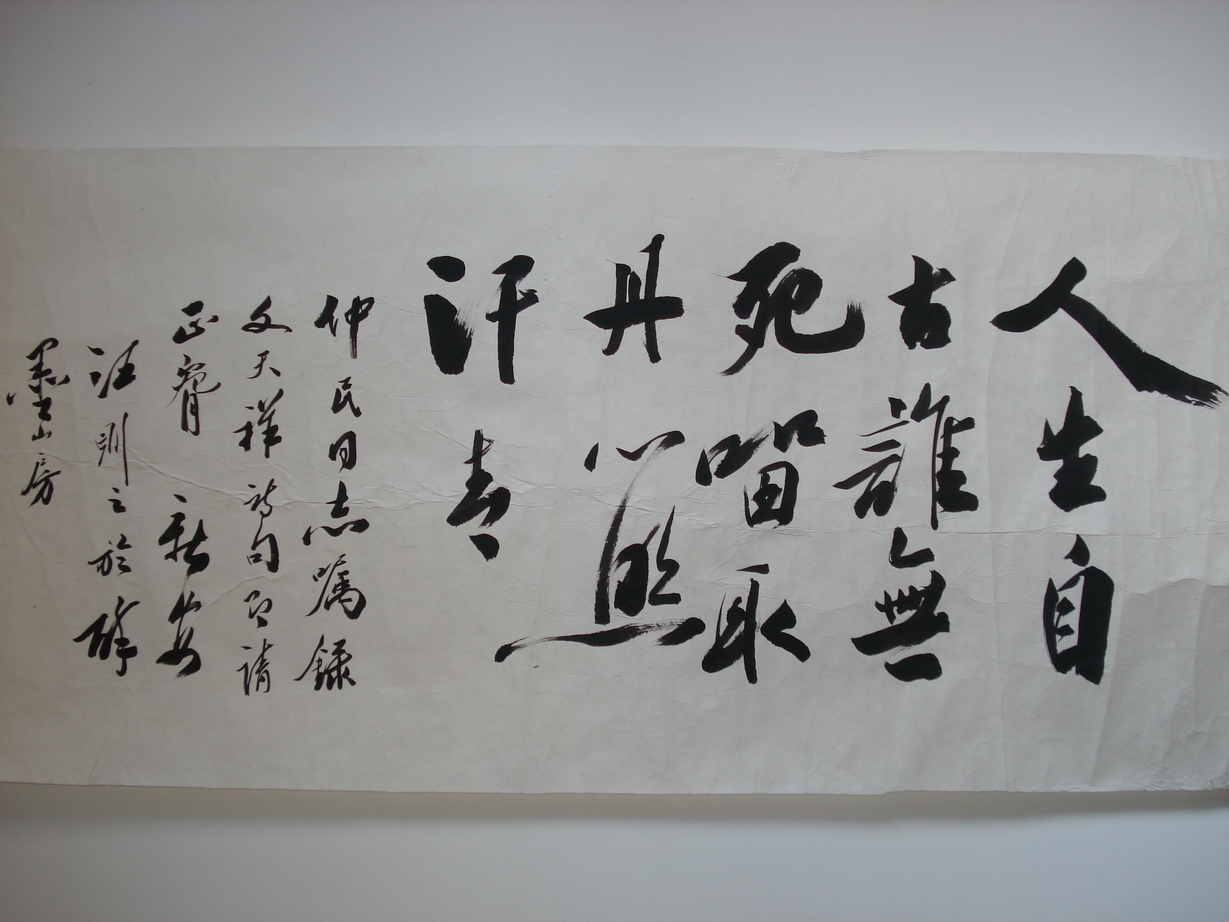 人生自
古誰無
死留取
丹心照
汗青
仲民同志嘱錄
文天祥詩句即請
正 新安
汪訓之於醉
墨山房